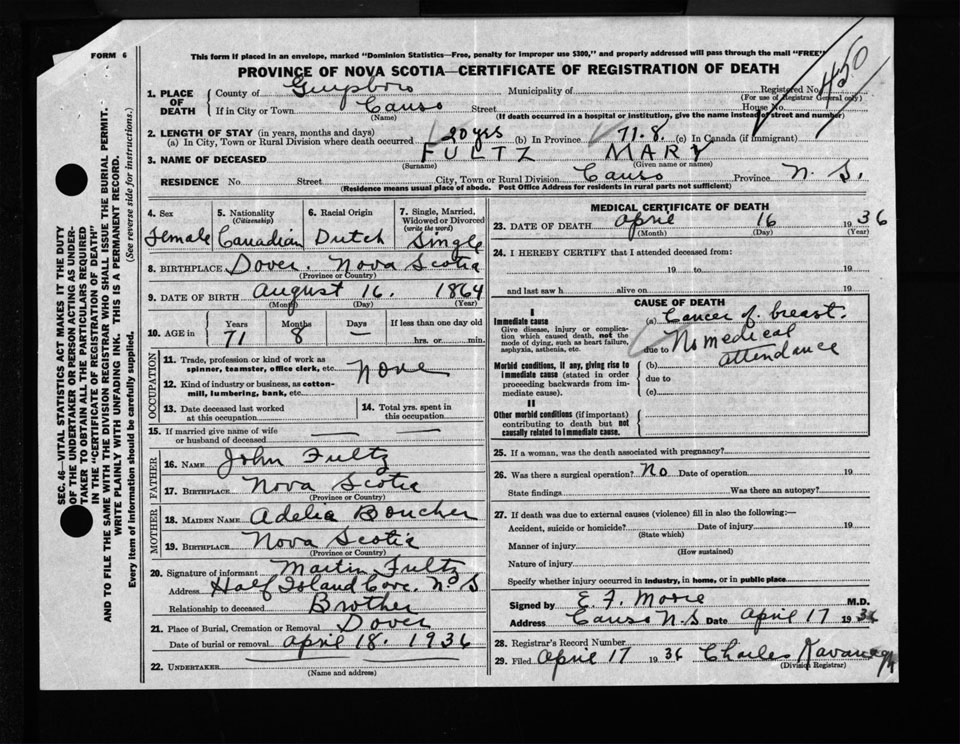 FORM 6
This form if placed in an envelope, marked "Dominion Statistics—Free, penalty for improper use $300," and properly addressed will pass through the mail "FREE"
PROVINCE OF NOVA SCOTIA—CERTIFICATE OF REGISTRATION OF DEATH
450
1. PLACE OF DEATH
County of Guysboro Municipality of Registered No.
(For use of Registrar General only)
If in City or Town Canso Street House No.
(Name) (If death occurred in a hospital or institution, give the name instead of street and number)
2. LENGTH OF STAY (in years, months and days)
(a) In City, Town or Rural Division where death occurred 20 yrs (b) In Province 71.8. (c) In Canada (if immigrant)
3. NAME OF DECEASED FULTZ MARY
(Surname) (Given name or names)
RESIDENCE No Street City, Town or Rural Division Canso Province N. S.
(Residence means usual place of abode. Post Office Address for residents in rural parts not sufficient)
4. Sex
Female
5. Nationality
(Citizenship)
Canadian
6. Racial Origin
Dutch
7. Single, Married, Widowed or Divorced
(write the word)
Single
8. BIRTHPLACE Dover. Nova Scotia
(Province or Country)
9. DATE OF BIRTH August 16. 1864
(Month) (Day) (Year)
10. AGE in
Years Months Days If less than one day old
71 8 — hrs. or min.
OCCUPATION
11. Trade, profession or kind of work as spinner, teamster, office clerk, etc. None
12. Kind of industry or business, as cotton-mill, lumbering, bank, etc.
13. Date deceased last worked at this occupation
14. Total yrs. spent in this occupation
15. If married give name of wife or husband of deceased — —
FATHER
16. NAME John Fultz
17. BIRTHPLACE Nova Scotia
(Province or Country)
MOTHER
18. MAIDEN NAME Adelia Boucher
19. BIRTHPLACE Nova Scotia
(Province or Country)
20. Signature of informant Martin Fultz
Address Half Island Cove. N.S
Relationship to deceased Brother
21. Place of Burial, Cremation or Removal Dover
Date of burial or removal April 18. 1936
22. UNDERTAKER
(Name and address)
MEDICAL CERTIFICATE OF DEATH
23. DATE OF DEATH April 16 1936
(Month) (Day) (Year)
24. I HEREBY CERTIFY that I attended deceased from:
19 to 19
and last saw h alive on 19
CAUSE OF DEATH
I
Immediate cause
Give disease, injury or complication which caused death, not the mode of dying, such as heart failure, asphyxia, asthenia, etc.
(a) Cancer of breast.
due to No medical
attendance
Morbid conditions, if any, giving rise to immediate cause (stated in order proceeding backwards from immediate cause).
(b)
due to
(c)
II
Other morbid conditions (if important) contributing to death but not causally related to immediate cause.
25. If a woman, was the death associated with pregnancy?
26. Was there a surgical operation? No Date of operation 19
State findings Was there an autopsy?
27. If death was due to external causes (violence) fill in also the following:—
Accident, suicide or homicide? Date of injury 19
(State which)
Manner of injury
(How sustained)
Nature of injury
Specify whether injury occurred in industry, in home, or in public place
Signed by E. F. Moore M.D.
Address Canso N.S Date April 17 1936
28. Registrar's Record Number
29. Filed April 17 1936 Charles Kavanagh
(Division Registrar)
SEC. 46—VITAL STATISTICS ACT MAKES IT THE DUTY
OF THE UNDERTAKER OR PERSON ACTING AS UNDER-
TAKER TO OBTAIN ALL THE PARTICULARS REQUIRED
IN THE "CERTIFICATE OF REGISTRATION OF DEATH"
AND TO FILE THE SAME WITH THE DIVISION REGISTRAR WHO SHALL ISSUE THE BURIAL PERMIT.
WRITE PLAINLY WITH UNFADING INK. THIS IS A PERMANENT RECORD.
Every item of information should be carefully supplied. (See reverse side for instructions.)